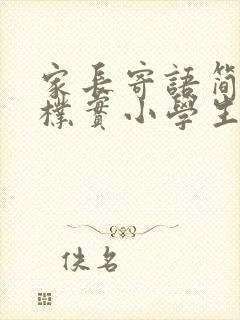 家長寄語簡
樸實小學生
佚名